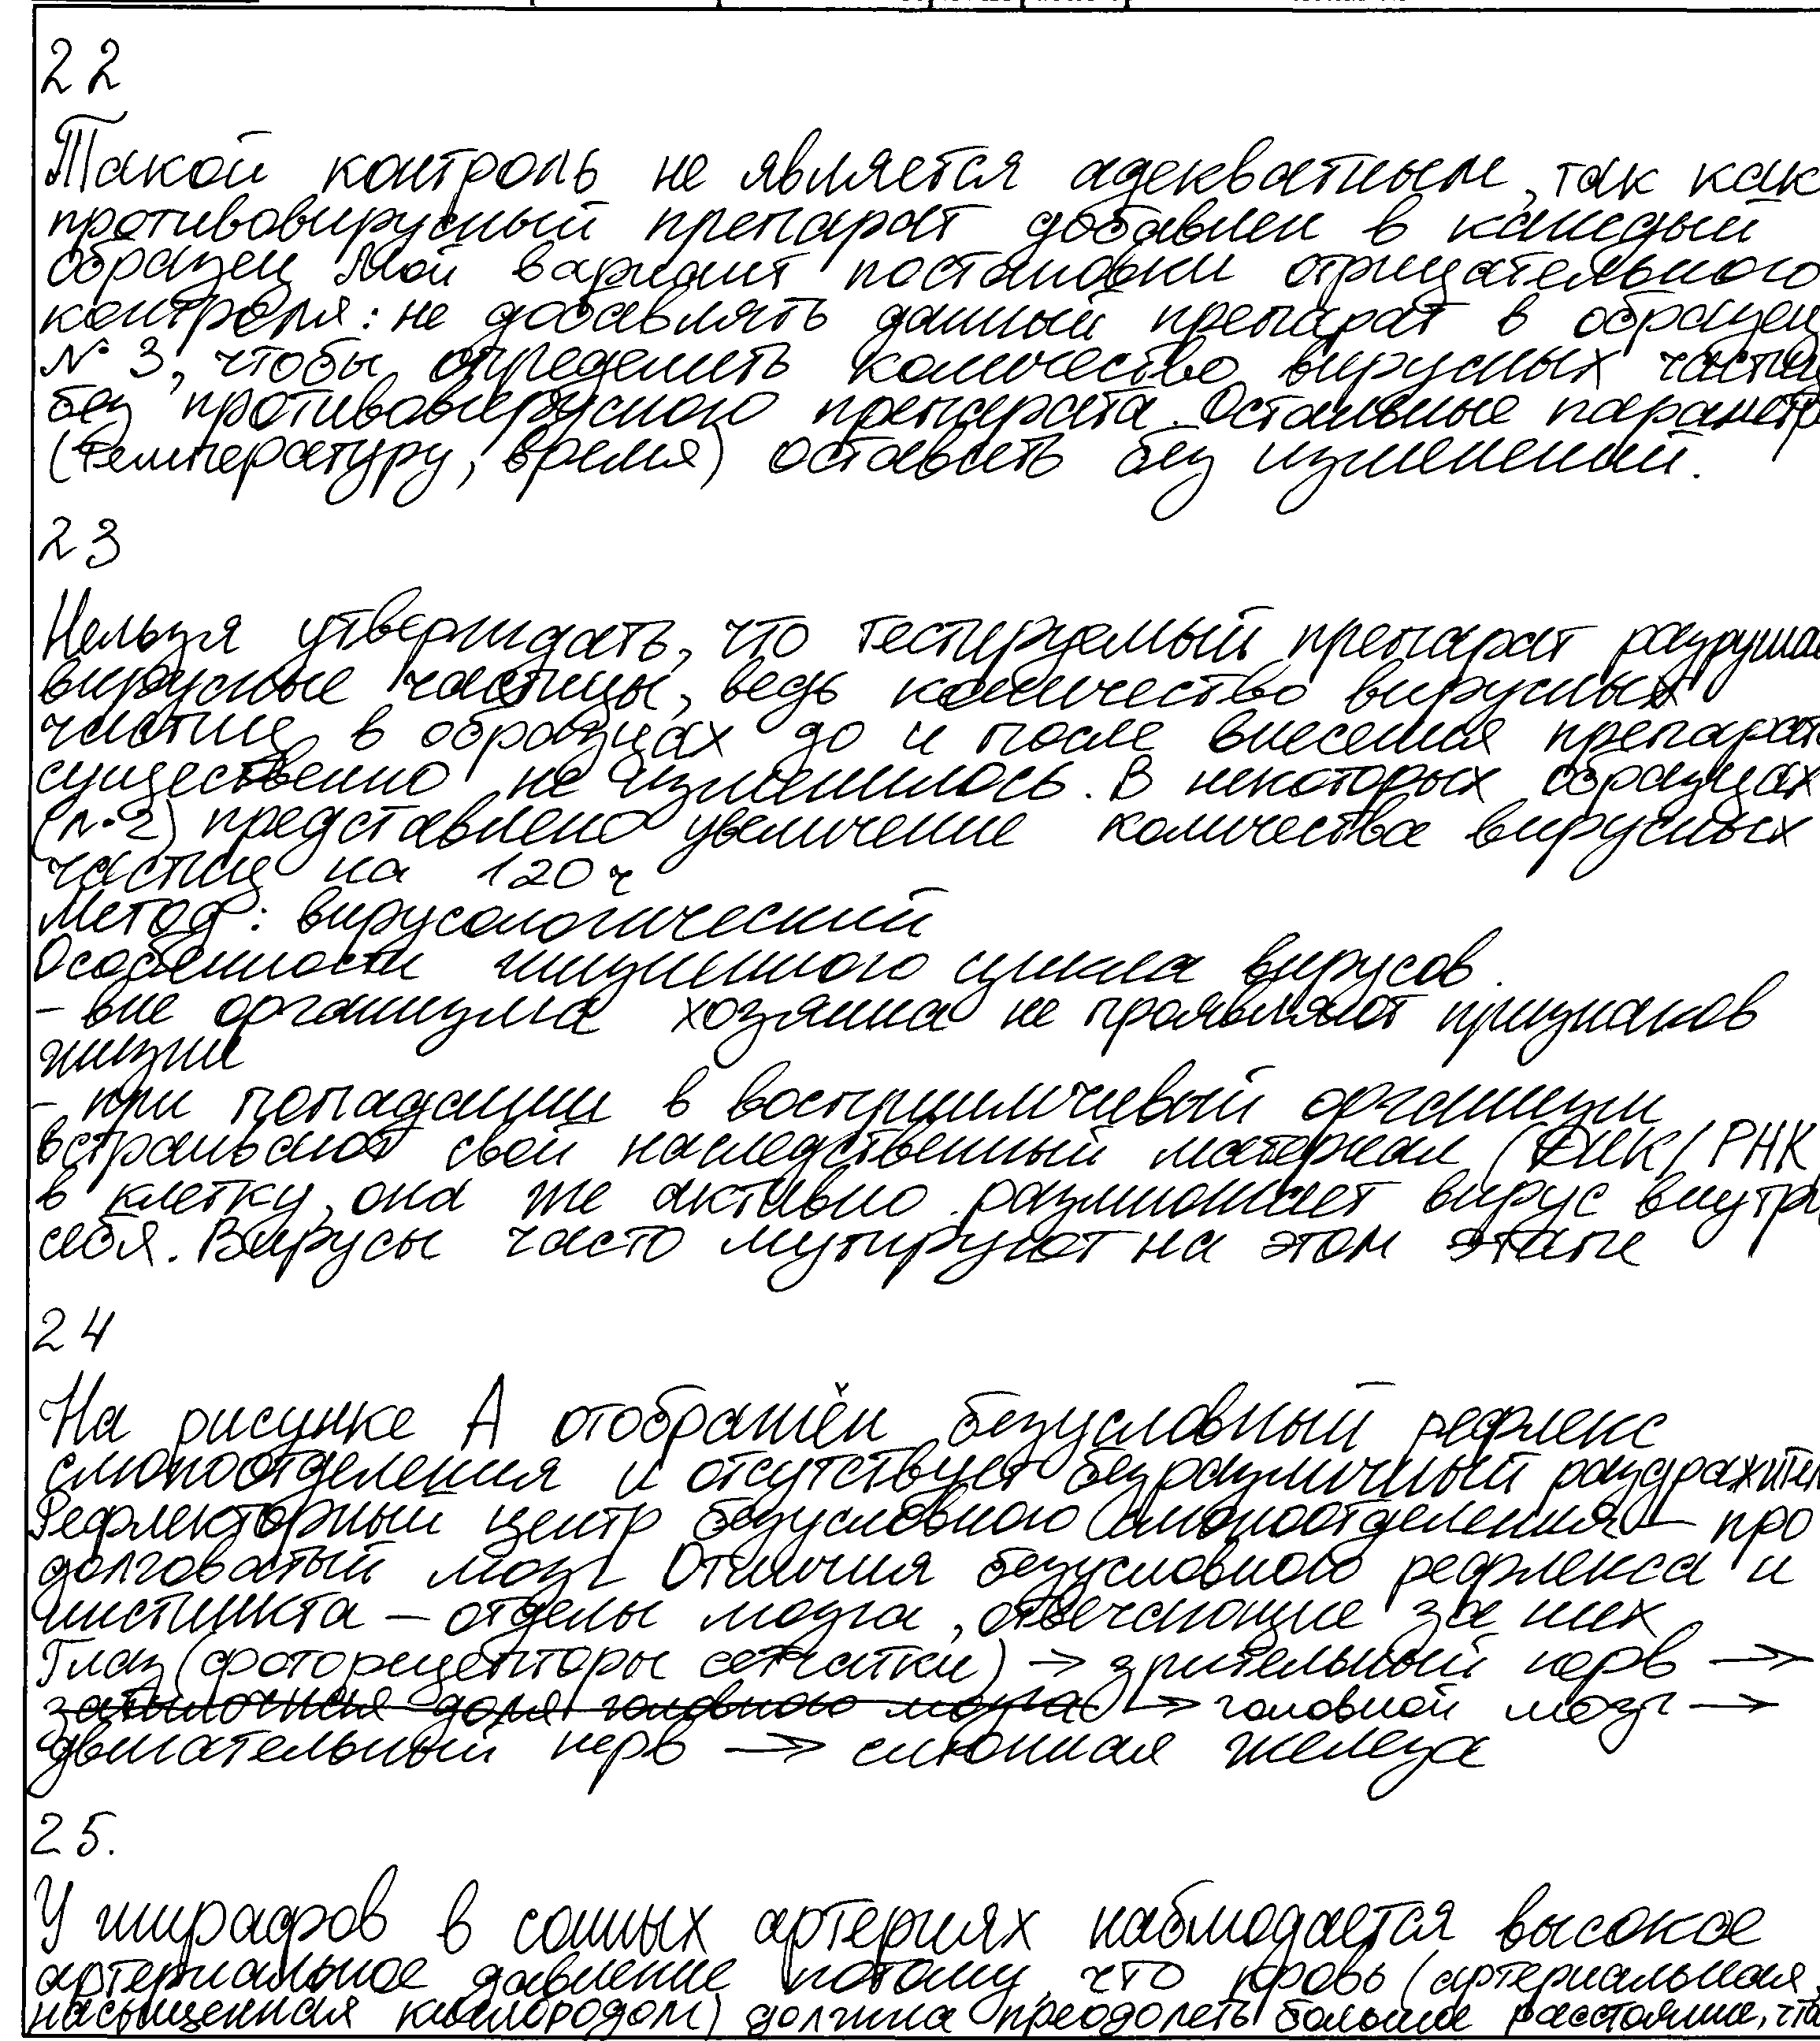 22
Такой контроль не является адекватным, так как
противовирусный препарат добавлен в каждый
образец Мой вариант постановки отрицательного
контроля: не добавлять данный препарат в образец
№ 3, чтобы определить количество вирусных частиц
без противовирусного препарата. Остальные парамет
(температуру, время) оставить без изменений.
23
Нельзя утверждать, что тестируемый препарат разруша
вирусные частицы, ведь количество вирусных
частиц в образцах до и после внесения препарат
существенно не изменилось. В некоторых образцах
(№2) представлено увеличение количества вирусных
частиц на 120 ч
Метод: вирусологический
Особенности жизненного цикла вирусов.
- вне организма хозяина не проявляют признаков
жизни
- при попадании в восприимчивый организм
встраивают свой наследственный материал (ДНК/РНК
в клетку, она же активно размножает вирус внутри
себя. Вирусы часто мутируют на этом этапе
24
На рисунке А отображён безусловный рефлекс
слюноотделения и отсутствует безразличный раздражител
Рефлекторный центр безусловного слюноотделения – про
долговатый мозг Отличия безусловного рефлекса и
инстинкта – отделы мозга, отвечающие за них
Глаз (фоторецепторы сетчатки) → зрительный нерв →
затылочная доля головного мозга → головной мозг →
двигательный нерв → слюнная железа
25.
У жирафов в сонных артериях наблюдается высокое
артериальное давление потому, что кровь (артериальная,
насыщенная кислородом) должна преодолеть большое расстояние, что